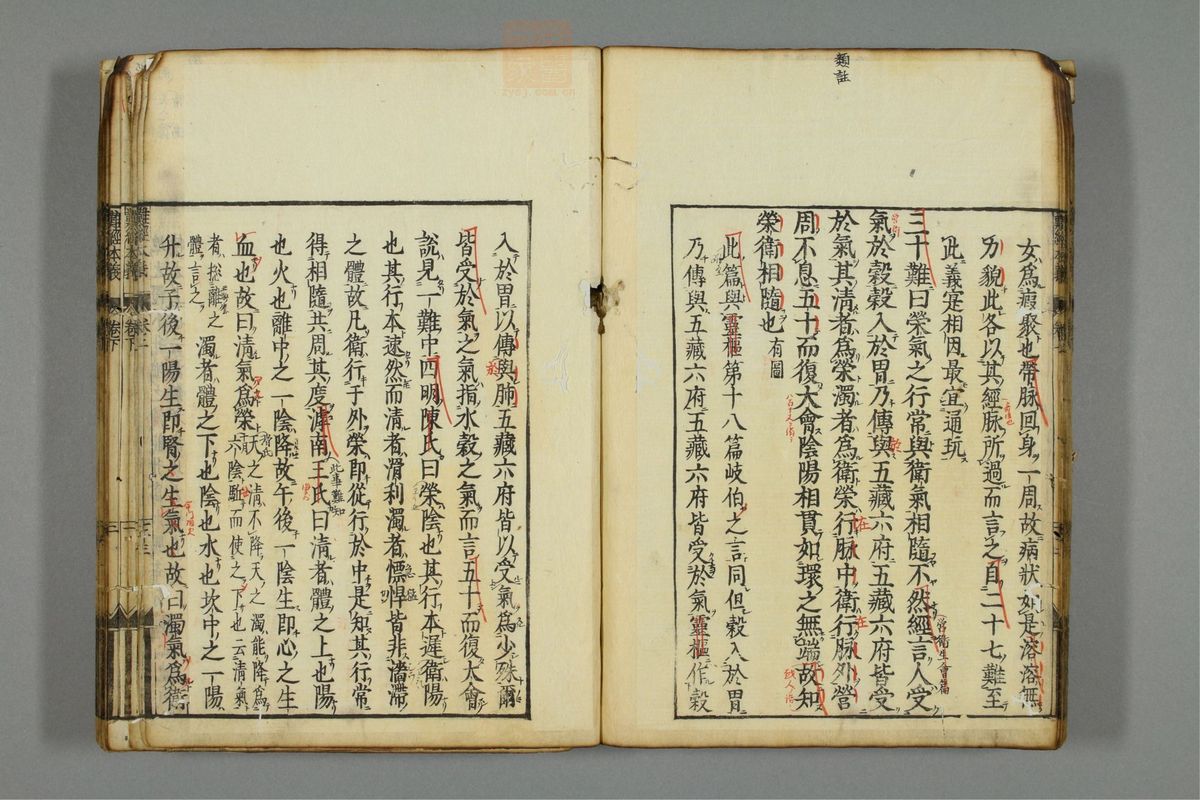 類註
女爲瘕聚也帶脉回身一周故病狀如是溶溶無
力貌此各以其經脉所過而言之自二十七難至
此義寔相因最宜通玩
三十難曰榮氣之行常與衛氣相隨不然經言人受
氣於穀穀入於胃乃傳與五藏六府五藏六府皆受
於氣其清者爲榮濁者爲衛榮行脉中衛行脉外營
周不息五十而復大會陰陽相貫如環之無端故知
榮衛相隨也 有圖
此篇與靈樞第十八篇岐伯之言同但穀入於胃
乃傳與五藏六府五藏六府皆受於氣靈樞作穀
入於胃以傳與肺五藏六府皆以受氣爲少殊爾
皆受於氣之氣指水穀之氣而言五十而復大會
說見一難中四明陳氏曰榮陰也其行本遲衛陽
也其行本速然而清者滑利濁者慓悍皆非濇滯
之體故凡衛行于外榮即從行於中是知其行常
得相隨共周其度滹南王氏曰清者體之上也陽
也火也離中之一陰降故午後一陰生即心之生
血也故曰清氣爲榮 天之清不降天之濁能降爲
六陰驅而使之下也云清氣
者総離之
體言之 濁者體之下也陰也水也坎中之一陽
升故子後一陽生即腎之生氣也故曰濁氣爲衛
難經本義
卷下